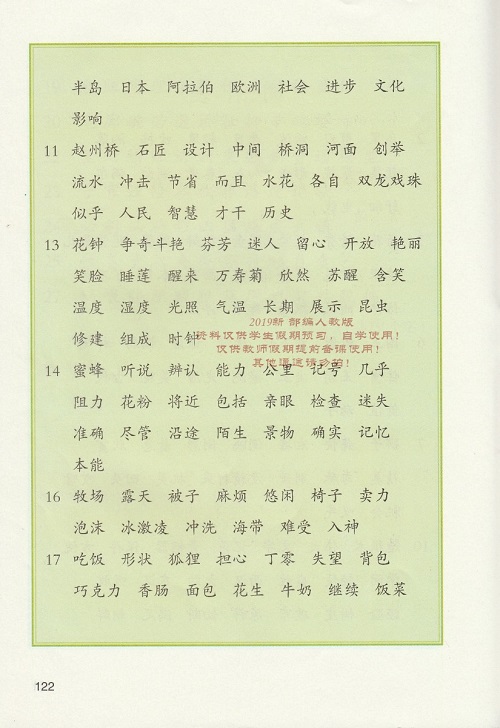 半岛 日本 阿拉伯 欧洲 社会 进步 文化
影响
11 赵州桥 石匠 设计 中间 桥洞 河面 创举
流水 冲击 节省 而且 水花 各自 双龙戏珠
似乎 人民 智慧 才干 历史
13 花钟 争奇斗艳 芬芳 迷人 留心 开放 艳丽
笑脸 睡莲 醒来 万寿菊 欣然 苏醒 含笑
温度 湿度 光照 气温 长期 展示 昆虫
2019新 部编人教版
修建 组成 时钟
资料仅供学生假期预习，自学使用！
仅供教师假期提前备课使用！
其他渠道请勿的！
14 蜜蜂 听说 辨认 能力 公里 记号 几乎
阻力 花粉 将近 包括 亲眼 检查 迷失
准确 尽管 沿途 陌生 景物 确实 记忆
本能
16 牧场 露天 被子 麻烦 悠闲 椅子 卖力
泡沫 冰激凌 冲洗 海带 难受 入神
17 吃饭 形状 狐狸 担心 丁零 失望 背包
巧克力 香肠 面包 花生 牛奶 继续 饭菜
122